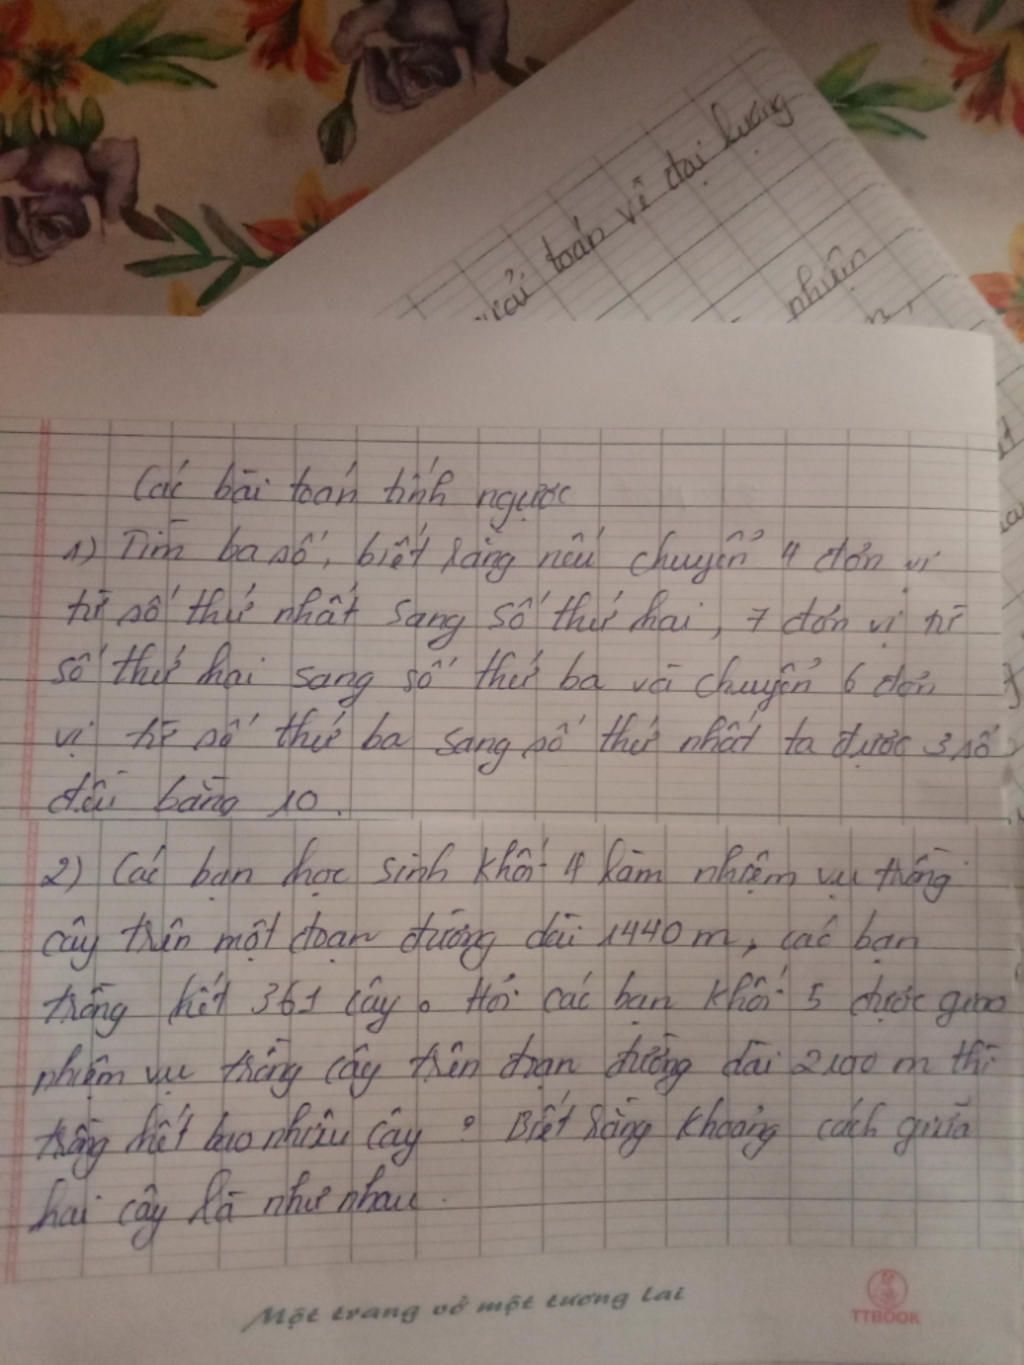 toán về đại lượng
nhiệm
Các bài toán tính ngược
1) Tìm ba số, biết rằng nếu chuyển 4 đơn vị
từ số thứ nhất sang số thứ hai, 7 đơn vị từ
số thứ hai sang số thứ ba và chuyển 6 đơn
vị từ số thứ ba sang số thứ nhất ta được 3 số
đều bằng 10.
2) Các bạn học sinh khối 4 làm nhiệm vụ trồng
cây trên một đoạn đường dài 1440 m, các bạn
trồng hết 361 cây. Hỏi các bạn khối 5 được giao
nhiệm vụ trồng cây trên đoạn đường dài 2100 m thì
trồng hết bao nhiêu cây? Biết rằng khoảng cách giữa
hai cây là như nhau.
Một trang vở một tương lai
TTBOOK